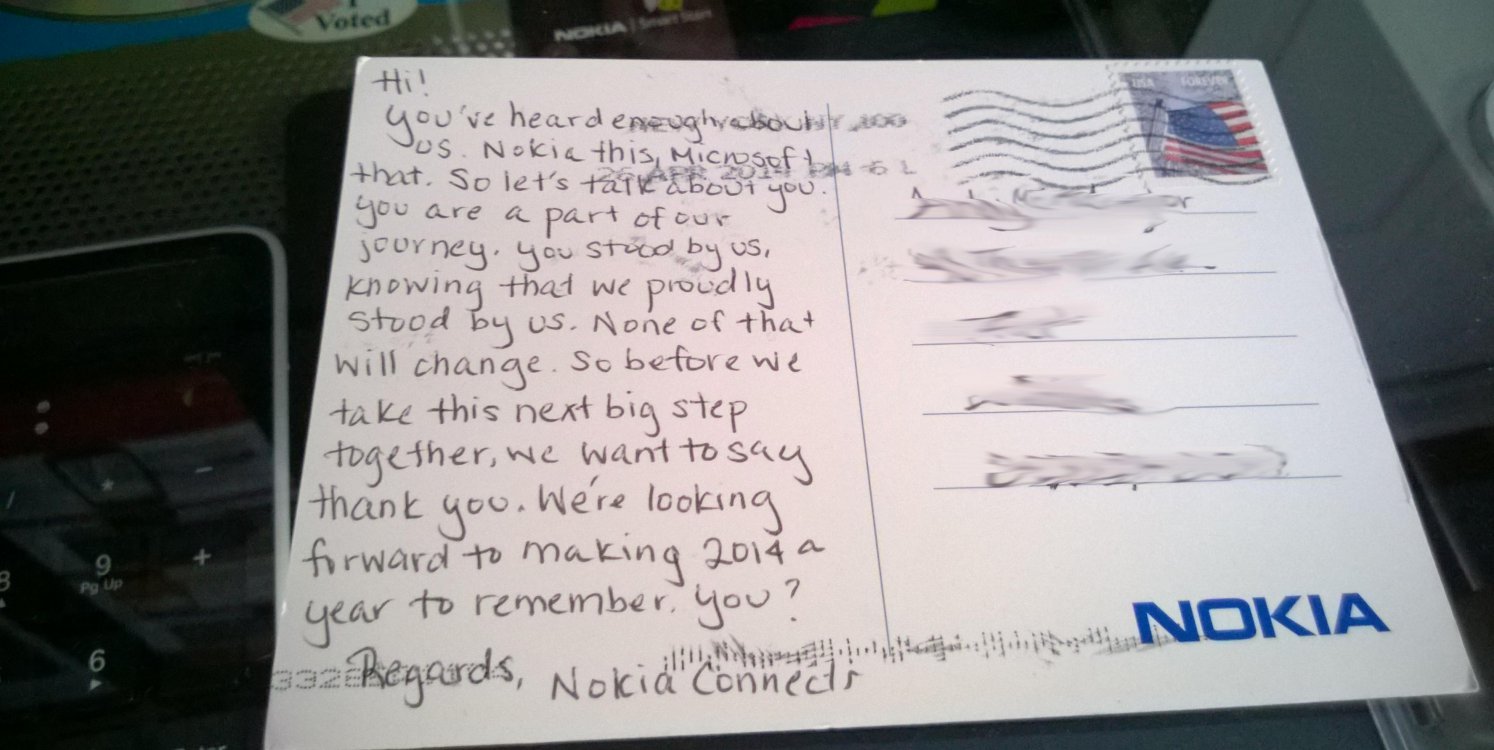 Voted
NOKIA | Smart Start
Hi!
You've heard enough about
us. Nokia this, Microsoft
that. So let's talk about you.
You are a part of our
journey. You stood by us,
knowing that we proudly
stood by us. None of that
will change. So before we
take this next big step
together, we want to say
thank you. We're looking
forward to making 2014 a
year to remember. You?
Regards, Nokia Connects
USA FOREVER
APR 2014 PM 6 L
NOKIA
9
Pg Up
+
-
*
/
6